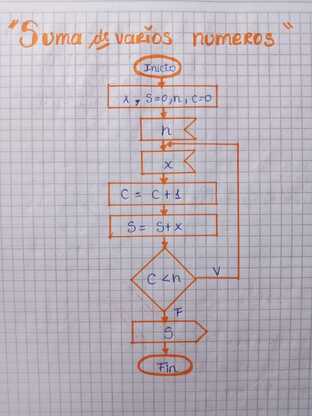 "Suma de varios numeros"
Inicio
x, S=0, n, c=0
n
x
C = C+1
S = S+x
C<n
V
F
S
Fin